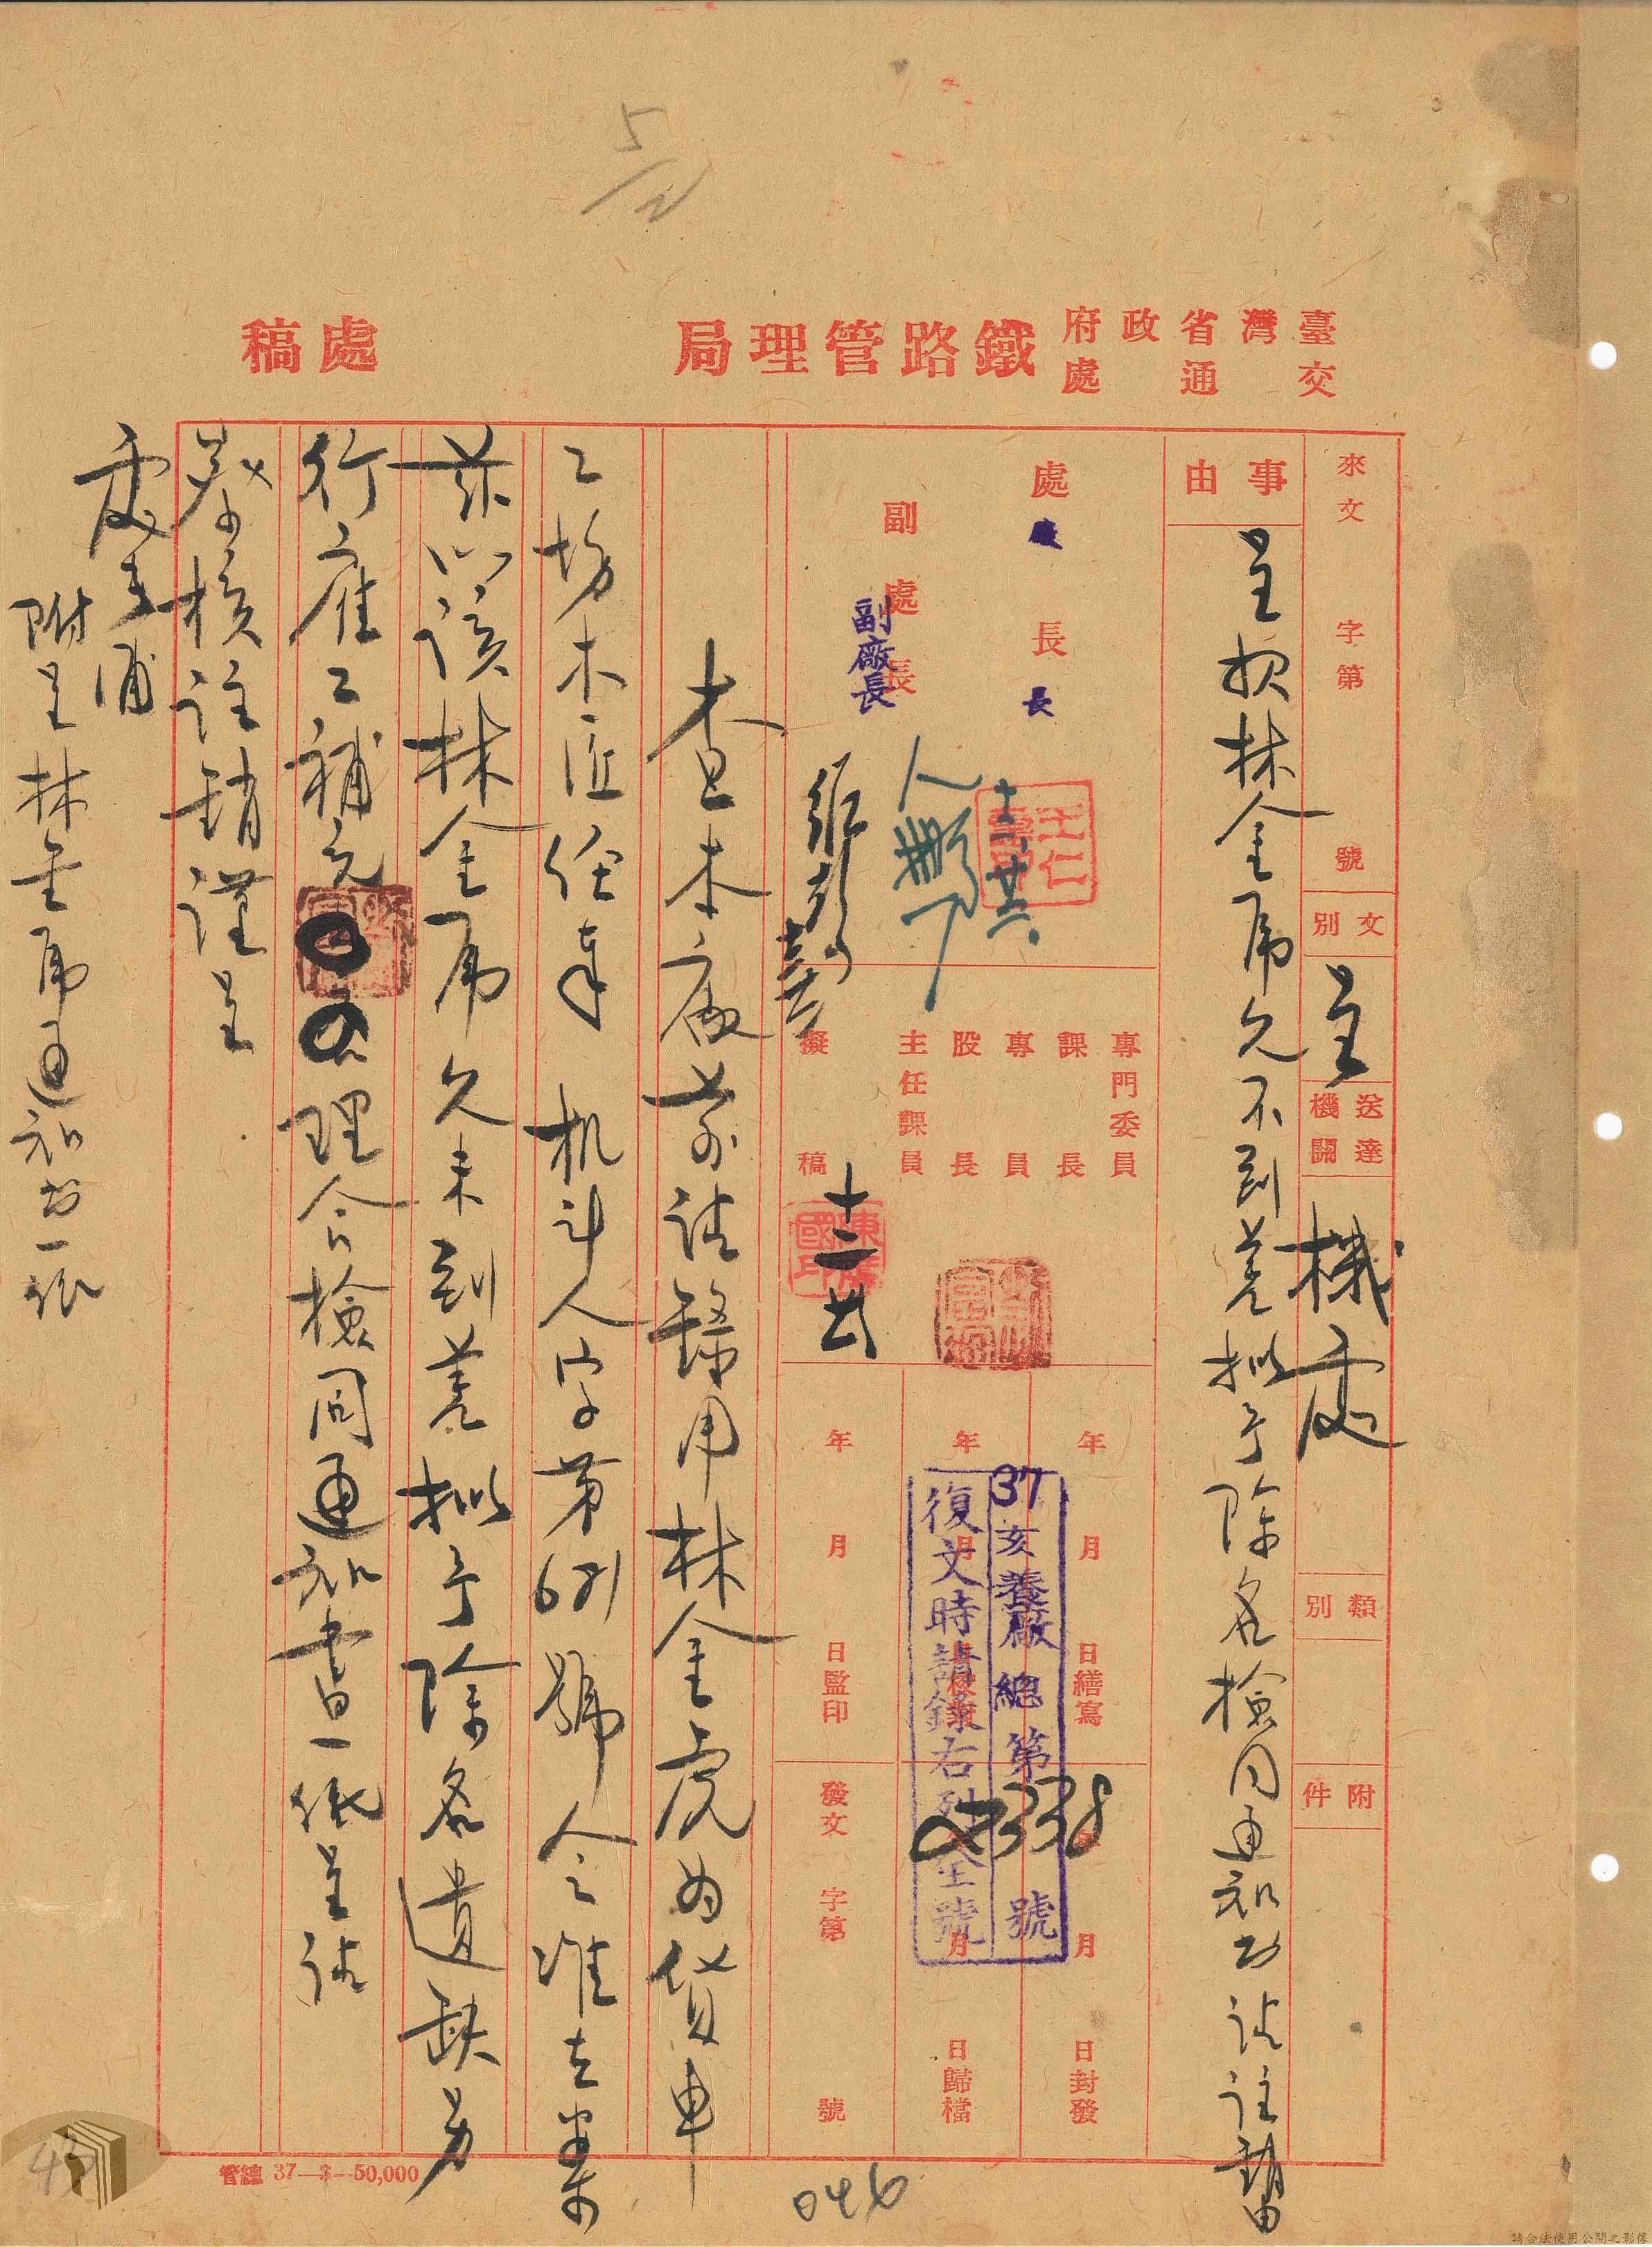 臺灣省政府
交通處
鐵路管理局
處稿
來文 字第 號
文別 呈
送達機關 機處
類別
附件
事由
呈報林金虎久不到差擬予除名檢同通知書請註銷由
處長
廠長
副處長
副廠長
十二廿六
專門委員
課長
專員
股長
主任課員
擬稿
十二 廿
年 月 日繕寫
年 月
年 月 日監印
37亥養廠總第 號
復文時請錄右列全號
2338
月 日封發
月 日歸檔
發文 字第 號
查本廠前請錄用林金虎為貨車
工場木匠任事 机斗人字第6281號令准在案
茲以該林金虎久未到差擬予除名遺缺另
行雇工補充
理合檢同通知書一紙呈請
鑒核註銷謹呈
處長 浦
附呈林金虎通知書一紙
管總 37—3—50,000
046
請合法使用公開之影像